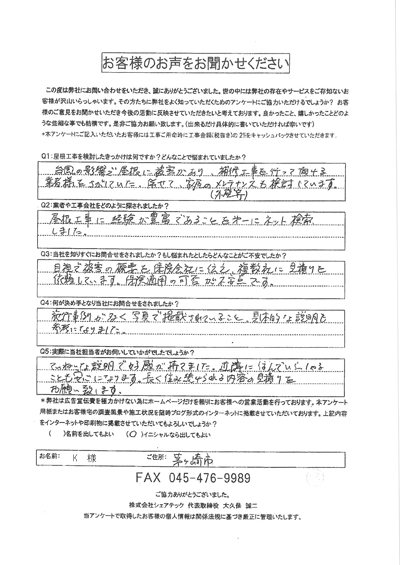 お客様のお声をお聞かせください
この度は弊社にお問い合わせをいただき、誠にありがとうございました。世の中には弊社の存在やサービスをご存知ないお
客様が沢山いらっしゃいます。その方たちに弊社をよく知っていただくためのアンケートにご協力いただけるでしょうか？ お客
様のご意見をお聞かせいただき今後の活動に反映させていただきたいと考えております。良かったこと、嬉しかったことどのよ
うな些細な事でも結構です。是非ご協力お願い致します。(出来るだけ具体的に書いていただければ幸いです)
*本アンケートにご記入いただいたお客様には工事ご用命時に工事金額(税抜き)の2%をキャッシュバックさせていただきます。
Q1:屋根工事を検討したきっかけは何ですか？どんなことで悩まれていましたか？
台風の影響で屋根に被害があり、補修工事を行って頂ける
業者様をさがしていた。併せて、家屋のメンテナンスも検討しています。
Q2:業者や工事会社をどのように探されましたか？
屋根工事に経験が豊富であることを第一にネット検索
しました。
Q3:当社を知りすぐにお問合せをされましたか？もし悩まれたとしたらどんなことがご不安でしたか？
目視で被害の概要を保険会社に伝え、複数社に見積りを
依頼しています。保険適用の可否が不安です。
Q4:何が決め手となり当社にお問合せをされましたか？
施行事例が多く写真で掲載されていること、具体的な説明も
参考になりました。
Q5:実際に当社担当者がお伺いしていかがでしたでしょうか？
ていねいな説明で好感が持てました。近隣に住んでいらしゃる
ことも安心になります。長く住み続けられる内容の見積りを
お願い致します。
* 弊社は広告宣伝費を極力かけない為にホームページだけを頼りにお客様への営業活動を行っております。本アンケート
用紙またはお客様宅の調査風景や施工状況を随時ブログ形式のインターネットに掲載させていただいております。上記内容
をインターネットや印刷物に掲載させていただいてもよろしいでしょうか？
( )名前を出してもよい (○)イニシャルなら出してもよい
お名前: K 様 ご住所: 茅ヶ崎市
FAX 045-476-9989
ご協力ありがとうございました。
株式会社シェアテック 代表取締役 大久保 誠二
当アンケートで取得したお客様の個人情報は関係法規に基づき厳正に管理いたします。